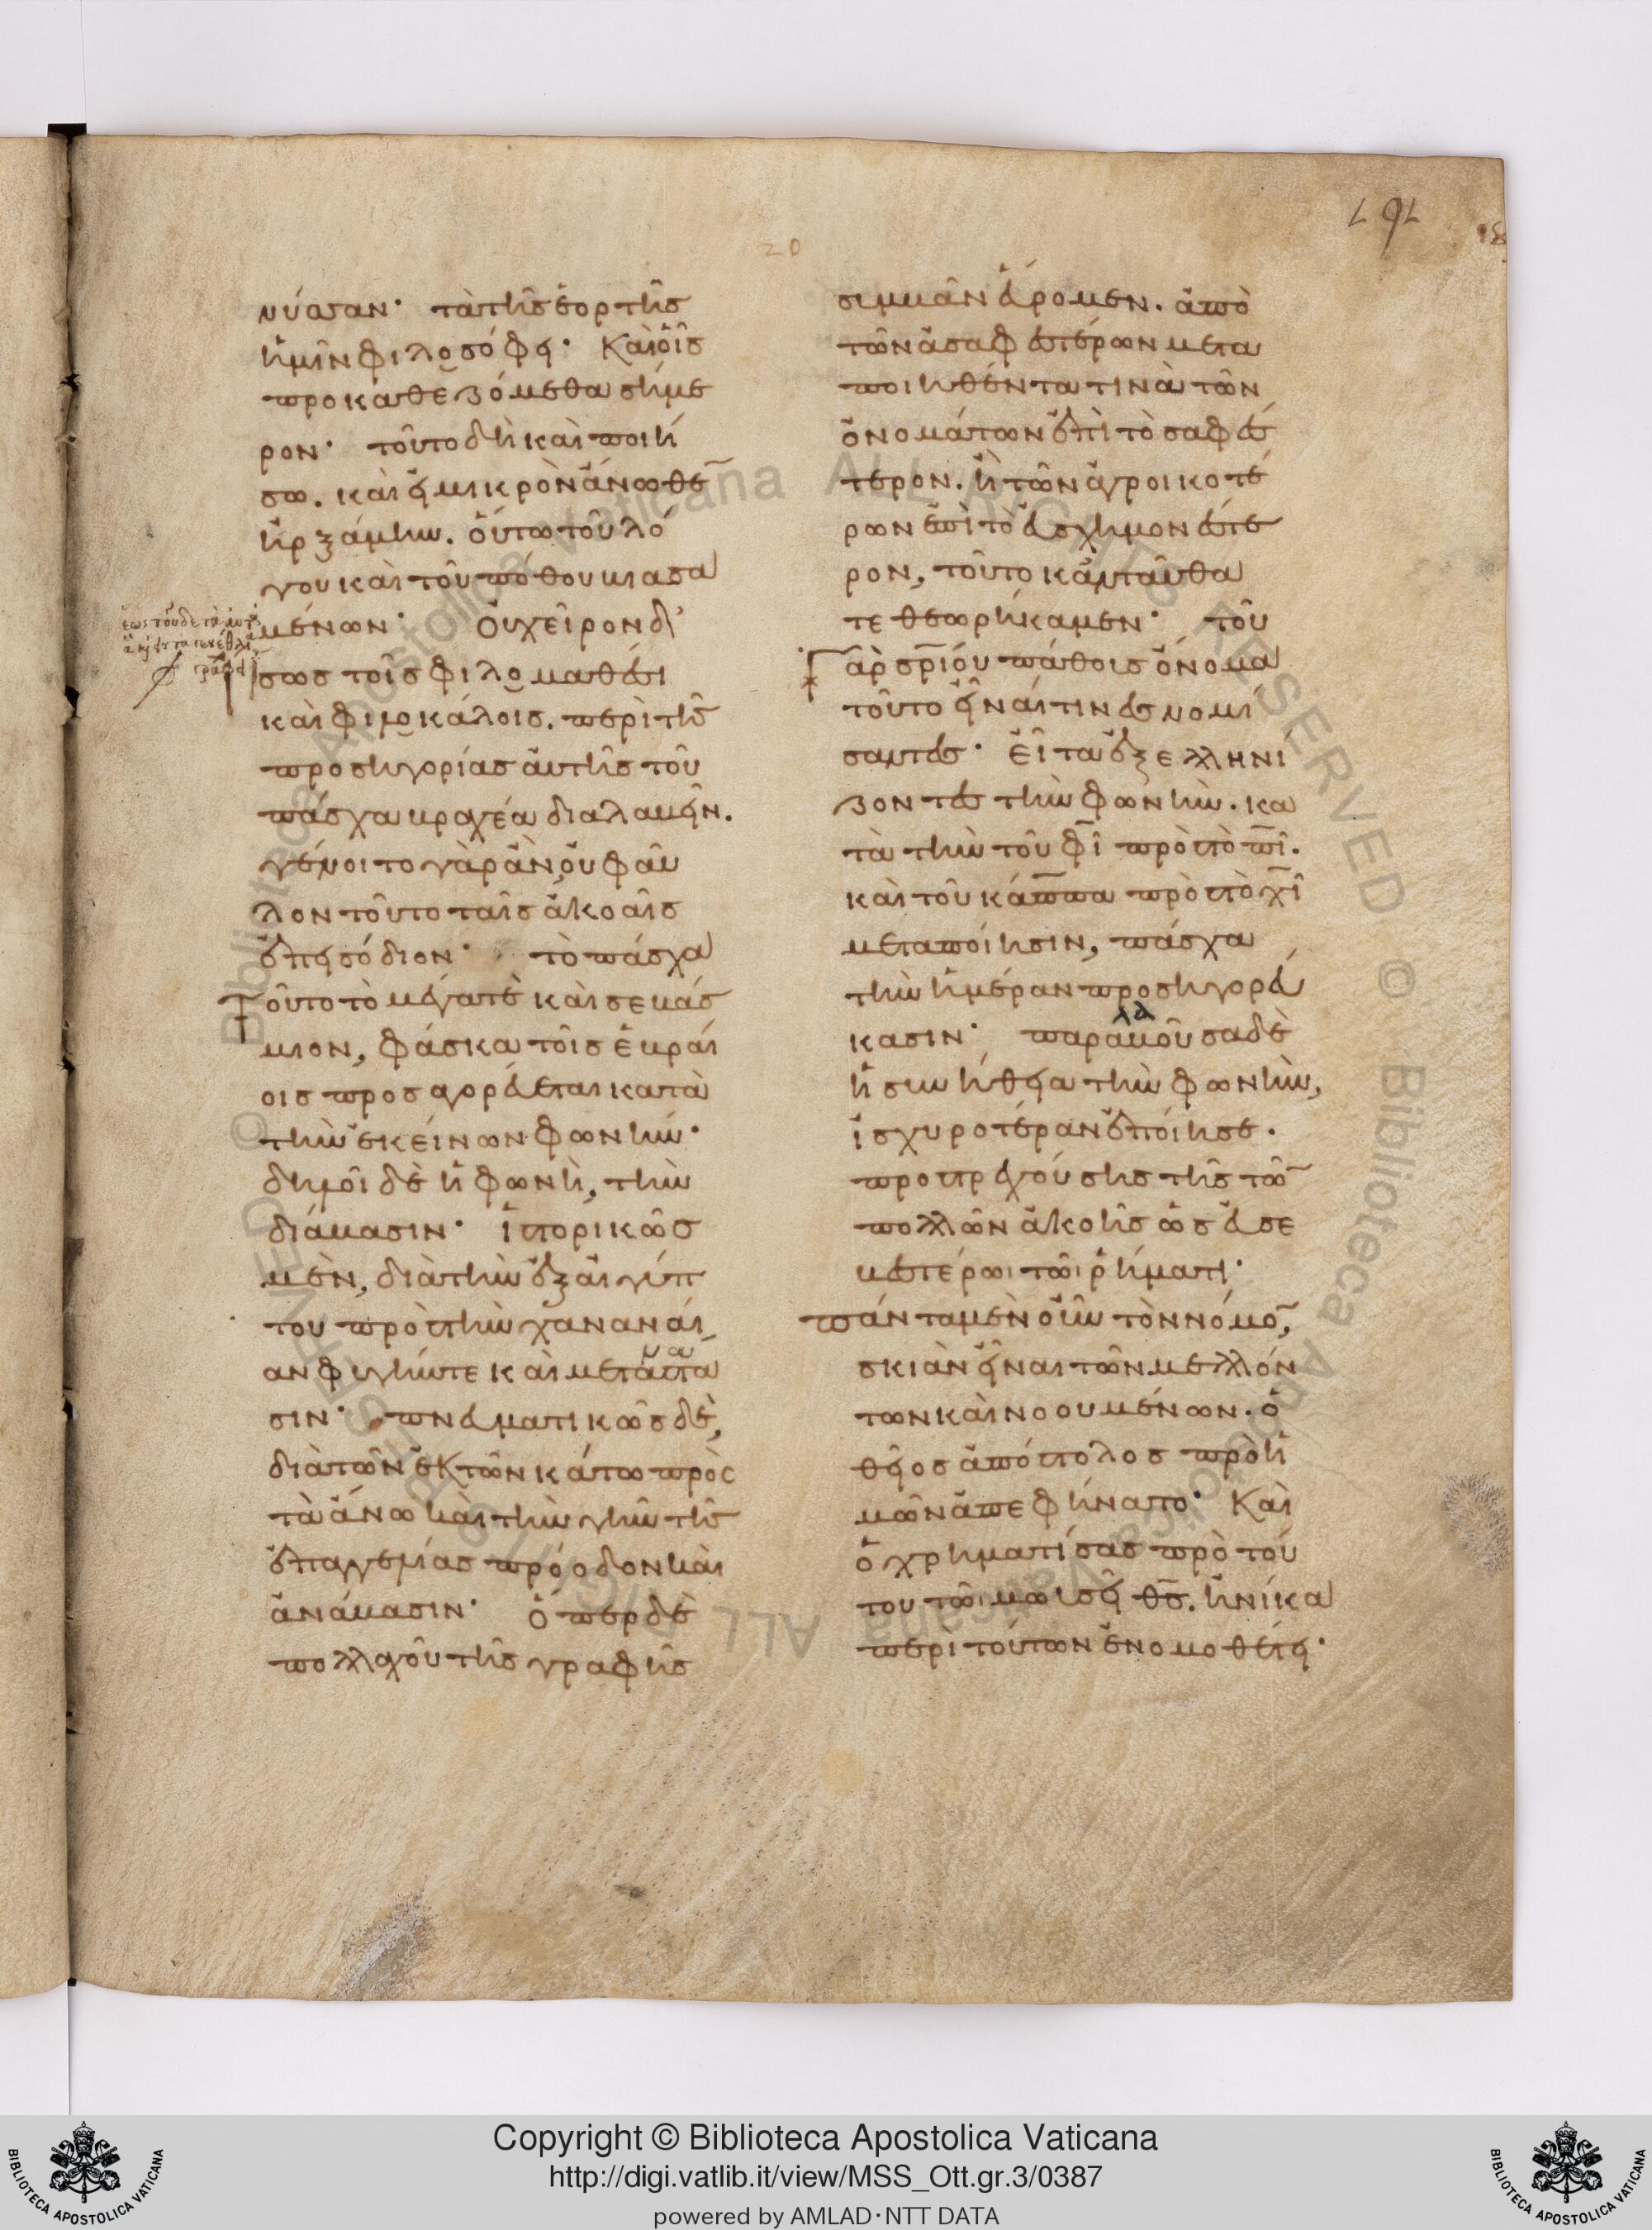 νύσσαν· τὰ τῆς ἑορτῆς
ἡμῖν φιλοσόφει· Καὶ οἷς
προκαθεζόμεθα σήμε
ρον· τοῦτο δὴ καὶ ποιή
σω. καὶ εἰ μικρὸν ἄνωθε̅
ἠρξάμην. οὕτω τοῦ λό
γου καὶ τοῦ πόθου βιασα
μένων· Οὐ χεῖρον δ'
ἕως τοῦδε τὰ αὐτὰ
ἴσως τοῖς φιλομαθέσι
καὶ φιλοκάλοις. περὶ τῆς
προσηγορίας αὐτῆς τοῦ
πάσχα βραχέα διαλαβεῖν.
γένοιτο γὰρ ἂν, οὐ φαῦ
λον τοῦτο ταῖς ἀκοαῖς
ἐπεισόδιον· τὸ πάσχα
Τοῦτο τὸ μέγα τὲ καὶ σεβάσ
μιον, φάσκα τοῖς ἑβραί
οις προσαγορεύεται κατὰ
τὴν ἐκείνων φωνήν·
δηλοῖ δὲ ἡ φωνὴ, τὴν
διάβασιν· ἱστορικῶς
μὲν, διὰ τὴν ἐξ αἰγύπ
του πρὸς τὴν χαναναί
αν φυγήν τε καὶ μετανάστα
σιν· πνευματικῶς δὲ,
διὰ τῶν ἐκ τῶν κάτω πρὸς
τὰ ἄνω καὶ τὴν γῆν τῆς
ἐπαγγελίας πρόοδον καὶ
ἀνάβασιν· ὅπερ δὲ
πολλαχοῦ τῆς γραφῆς
συμβὰν εὕρομεν. ἀπὸ
τῶν ἀσαφεστέρων μετα
ποιηθέντα τινὰ τῶν
ὀνομάτων ἐπὶ τὸ σαφέσ
τερον. ἢ τῶν ἀγροικοτέ
ρων ἐπὶ τὸ εὐσχημονέστε
ρον, τοῦτο κἀνταῦθα
τεθεωρήκαμεν· τοῦ
Γὰρ σρ̅ίου πάθους ὄνομα
τοῦτο εἶναί τινες νομί
σαντες· εἶτα ἐξελληνί
ζοντες τὴν φωνὴν. κα
τὰ τὴν τοῦ φ̅ῖ πρὸς τὸ π̅ῖ.
καὶ τοῦ κάππα πρὸς τὸ χ̅ῖ
μεταποίησιν, πάσχα
τὴν ἡμέραν προσηγορεύ
κασιν· παραλαβοῦσα δὲ
ἡ συνήθεια τὴν φωνὴν,
ἰσχυροτέραν ἐποίησε.
προστρεχούσης τῆς τῶ̅
πολλῶν ἀκοῆς ὡς εὐσε
βεστέρωι τῶι ῥήματι·
πάντα μὲν οὖν τὸν νόμο̅,
σκιὰν εἶναι τῶν μελλόν
των καὶ νοουμένων. ὁ
θεῖος ἀπόστολος πρὸ ἡ
μῶν ἀπεφήνατο· Καὶ
ὁ χρηματίσας πρὸ τού
του τῶι μωϊσεῖ θ̅ς̅. ἡνίκα
περὶ τούτων ἐνομοθέτει·
Copyright © Biblioteca Apostolica Vaticana
http://digi.vatlib.it/view/MSS_Ott.gr.3/0387
powered by AMLAD·NTT DATA